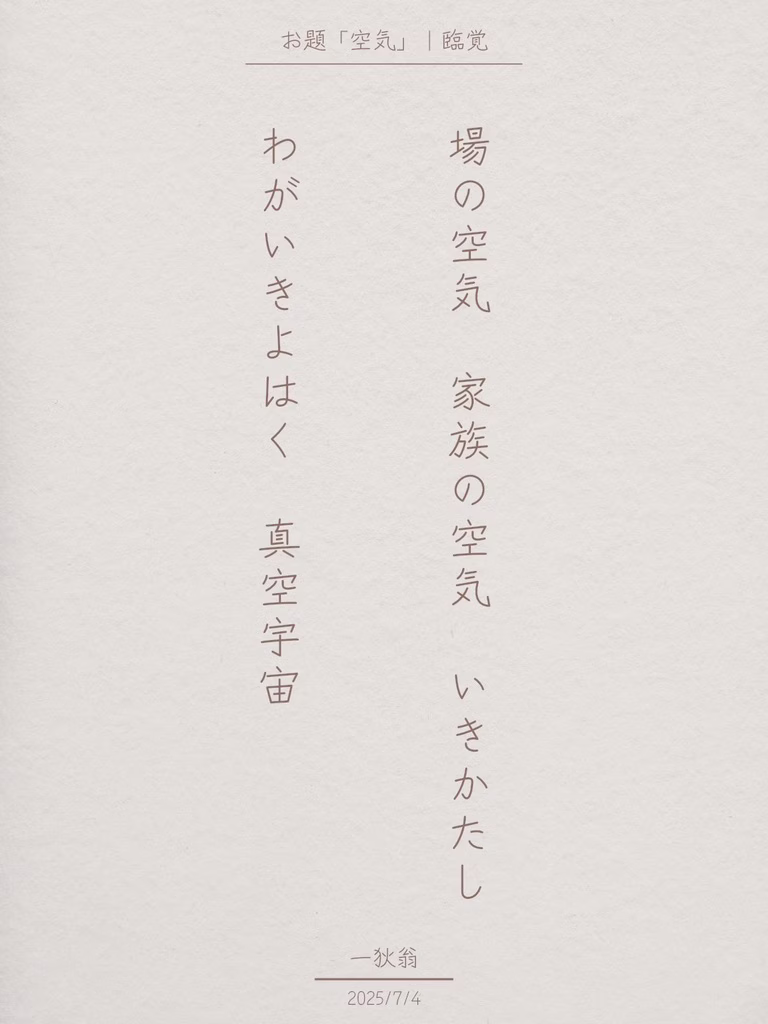 お題「空気」｜臨覚
場の空気　家族の空気　いきかたし
わがいきよはく　真空宇宙
一狄翁
2025/7/4